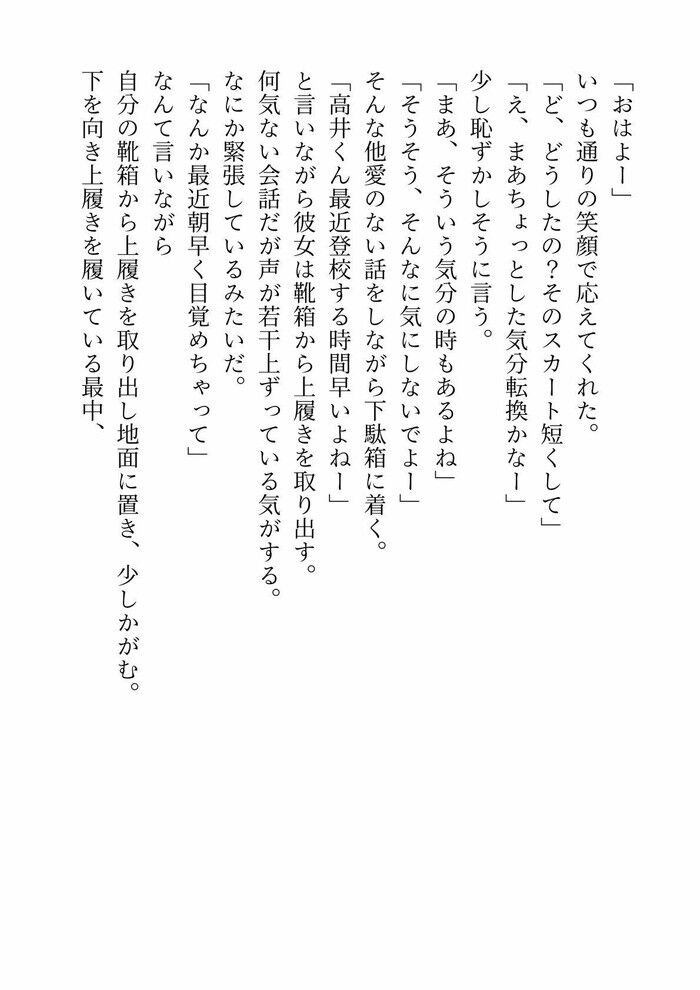 「おはよー」
いつも通りの笑顔で応えてくれた。
「ど、どうしたの？そのスカート短くして」
「え、まあちょっとした気分転換かなー」
少し恥ずかしそうに言う。
「まあ、そういう気分の時もあるよね」
「そうそう、そんなに気にしないでよー」
そんな他愛のない話をしながら下駄箱に着く。
「高井くん最近登校する時間早いよねー」
と言いながら彼女は靴箱から上履きを取り出す。
何気ない会話だが声が若干上ずっている気がする。
なにか緊張しているみたいだ。
「なんか最近朝早く目覚めちゃって」
なんて言いながら
自分の靴箱から上履きを取り出し地面に置き、少しかがむ。
下を向き上履きを履いている最中、